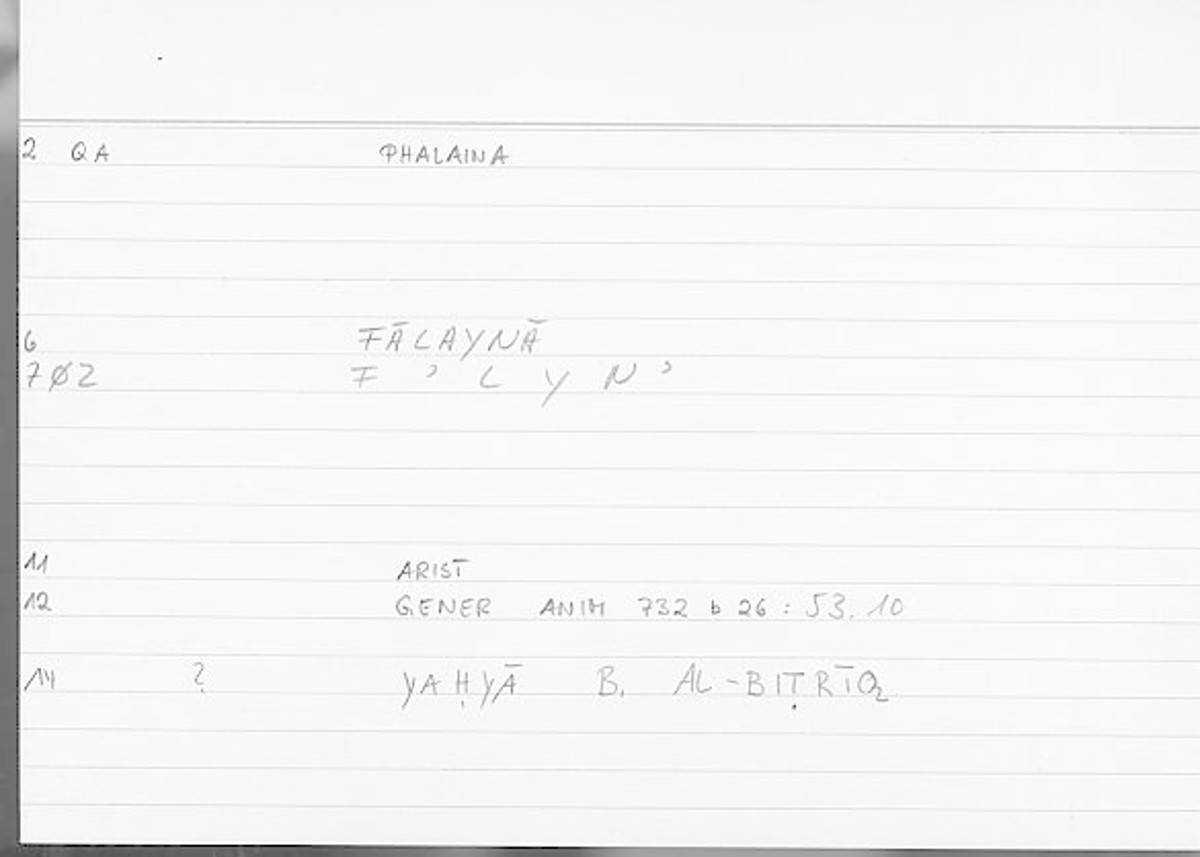 2 QA PHALAINA
6 FĀLAYNĀ
7Ø2 F ' L Y N '
11 ARIST
12 GENER ANIM 732 b 26 : 53.10
14 ? YAḤYĀ B. AL-BIṬRĪQ